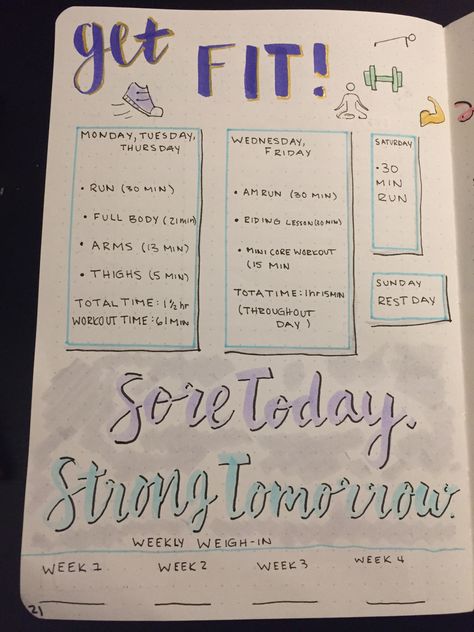 get FIT!
MONDAY, TUESDAY,
THURSDAY
• RUN (30 MIN)
• FULL BODY (21min)
• ARMS (13 MIN)
• THIGHS (5 MIN)
TOTAL TIME: 1 ½ hr
WORKOUT TIME: 61 MIN
WEDNESDAY,
FRIDAY
• AM RUN (30 MIN)
• RIDING LESSON (30 MIN)
• MINI CORE WORKOUT
(15 MIN
TOTATIME: 1hr 15MIN
(THROUGHOUT
DAY)
SATURDAY
• 30
MIN
RUN
SUNDAY
REST DAY
Sore Today.
Strong Tomorrow.
WEEKLY WEIGH-IN
WEEK 1 WEEK 2 WEEK 3 WEEK 4
21